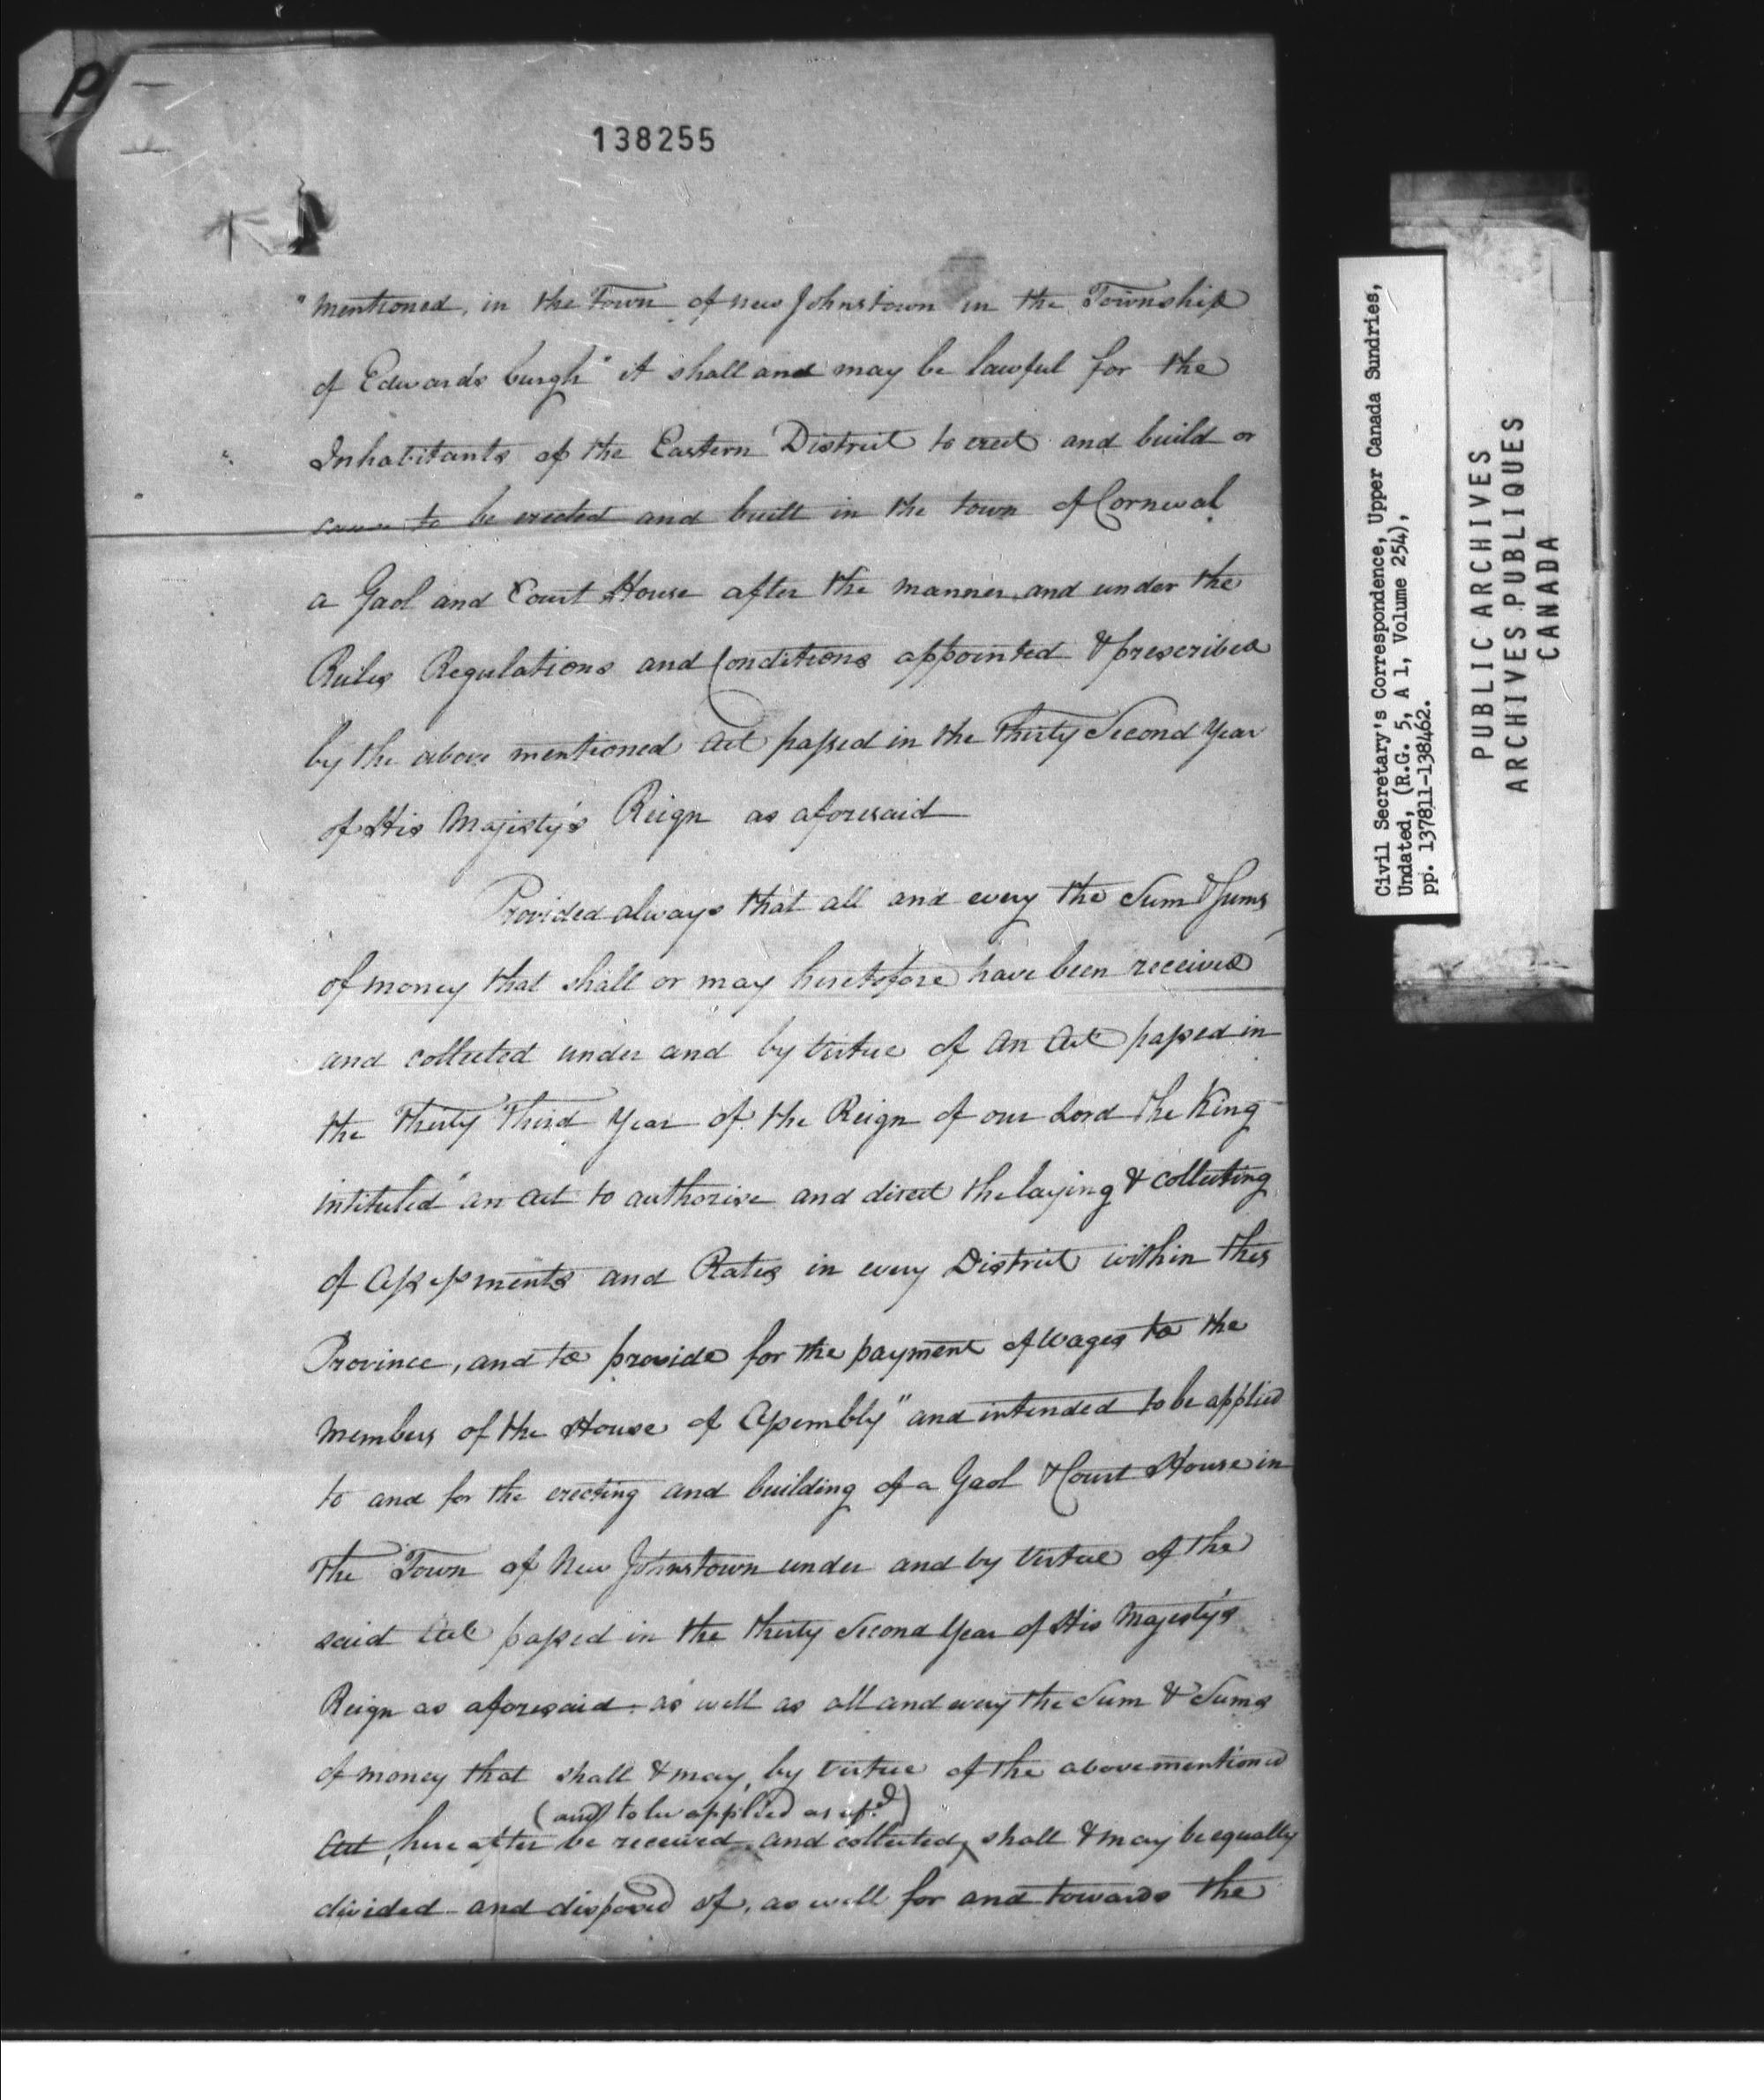 P
138255
"mentioned, in the Town of new Johnstown in the Township
of Edwardsburgh" it shall and may be lawful for the
Inhabitants of the Eastern District to erect and build or
cause to be erected and built in the town of Cornwal
a Gaol and Court House after the manner and under the
Rules Regulations and Conditions appointed & prescribed
by the above mentioned Act passed in the Thirty Second Year
of His Majesty's Reign as aforesaid
Provided always that all and every the Sum & Sums
of money that shall or may heretofore have been received
and collected under and by virtue of an Act passed in
the Thirty Third Year of the Reign of our Lord the King
intituled "an Act to authorise and direct the laying & collecting
of Assessments and Rates in every District within this
Province, and to provide for the payment of wages to the
members of the House of Assembly" and intended to be applied
to and for the erecting and building of a Gaol & Court House in
the Town of New Johnstown under and by virtue of the
said Act passed in the thirty Second Year of His Majesty's
Reign as aforesaid as well as all and every the Sum & Sums
of money that shall & may, by virtue of the above mentioned
(and to be applied as afd)
Act, hereafter be received and collected, shall & may be equally
divided and disposed of, as well for and towards the
Civil Secretary's Correspondence, Upper Canada Sundries,
Undated, (R.G. 5, A 1, Volume 254),
pp. 137811-138462.
PUBLIC ARCHIVES
ARCHIVES PUBLIQUES
CANADA